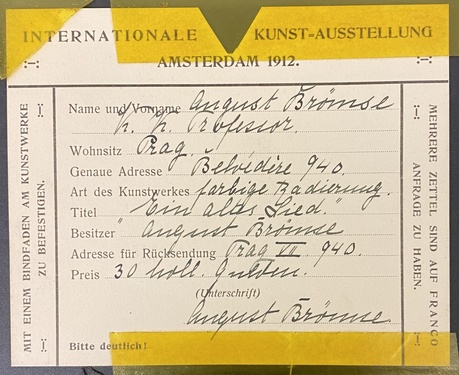 INTERNATIONALE KUNST=AUSSTELLUNG
AMSTERDAM 1912.
Name und Vorname August Brömse
K. K. Professor.
Wohnsitz Prag.
Genaue Adresse Belvedère 940.
Art des Kunstwerkes farbige Radierung.
Titel "Ein altes Lied."
Besitzer August Brömse
Adresse für Rücksendung Prag VII. 940.
Preis 30 holl. Gulden.
(Unterschrift)
August Brömse
Bitte deutlich!
MIT EINEM BINDFADEN AM KUNSTWERKE
ZU BEFESTIGEN.
MEHRERE ZETTEL SIND AUF FRANCO
ANFRAGE ZU HABEN.